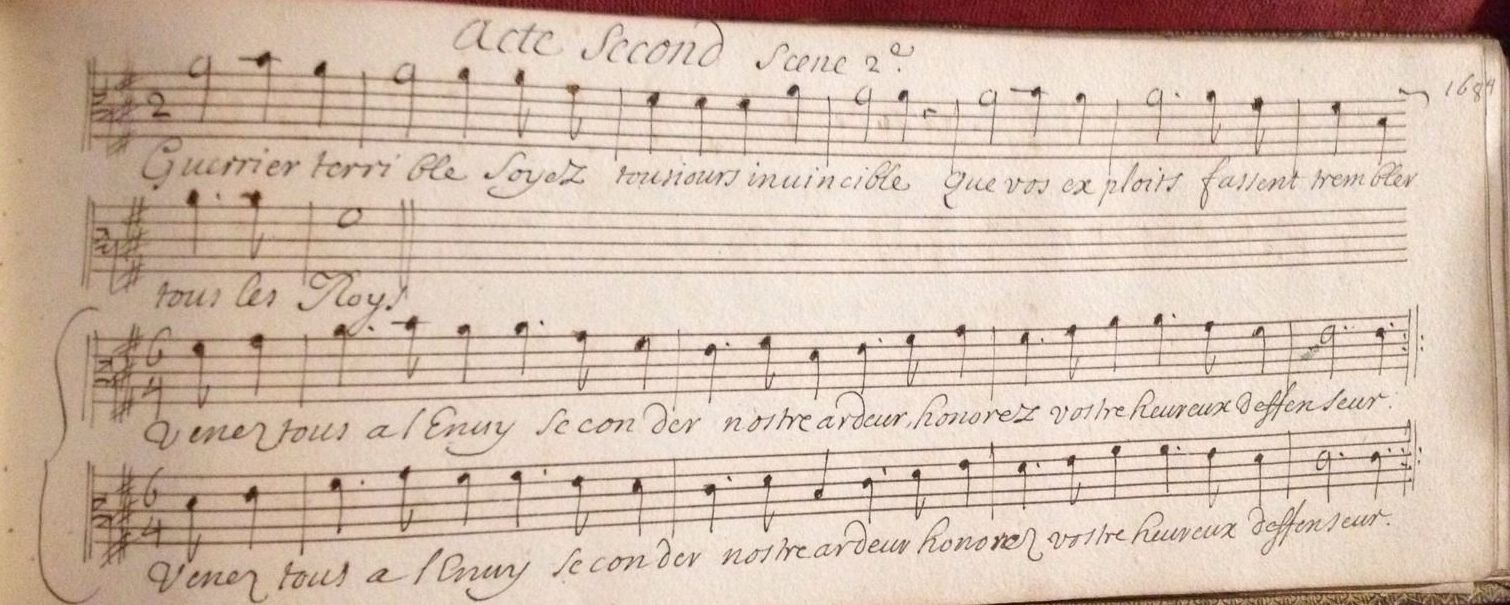 Acte Second Scene 2.e
1684
2
Guerrier terri ble Soyez tousiours inuincible que vos ex ploits fassent trembler
tous les Roys
6
4
Venez tous a l Enuy se con der nostre ardeur, honorez vostre heureux deffen seur.
6
4
Venez tous a l Enuy se con der nostre ardeur honorez vostre heureux deffenseur.